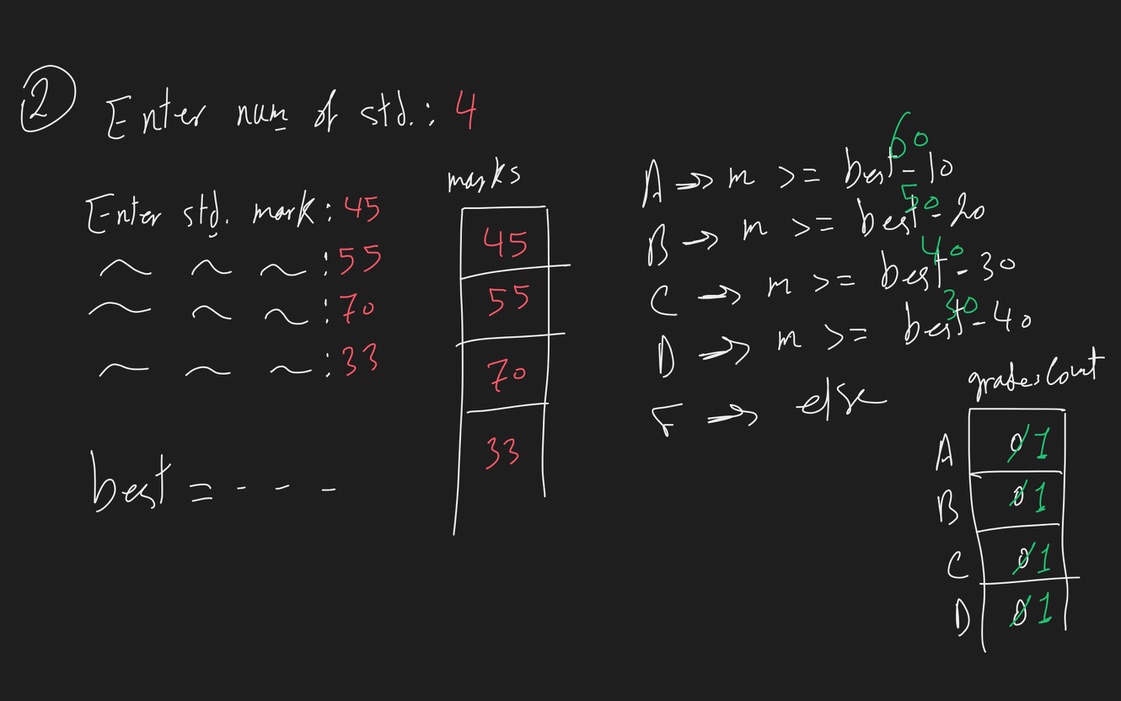 2
Enter num of std.: 4
Enter std. mark: 45
~ ~ ~ : 55
~ ~ ~ : 70
~ ~ ~ : 33
best = - - -
marks
45
55
70
33
60
A → m >= best - 10
50
B → m >= best - 20
40
C → m >= best - 30
30
D → m >= best - 40
F → else
gradesCount
A 0 1
B 0 1
C 0 1
D 0 1